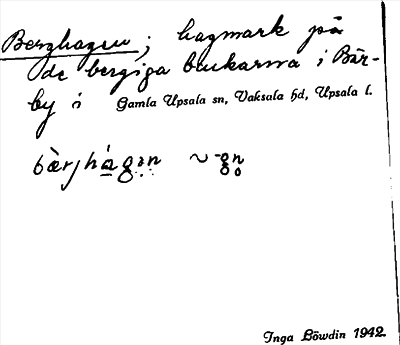 Berghagen; hagmark på
de bergiga backarna i Bär-
by i Gamla Upsala sn, Vaksala hd, Upsala l.
bæ̀rjhágən ~ -gn̥
Inga Löwdin 1942.